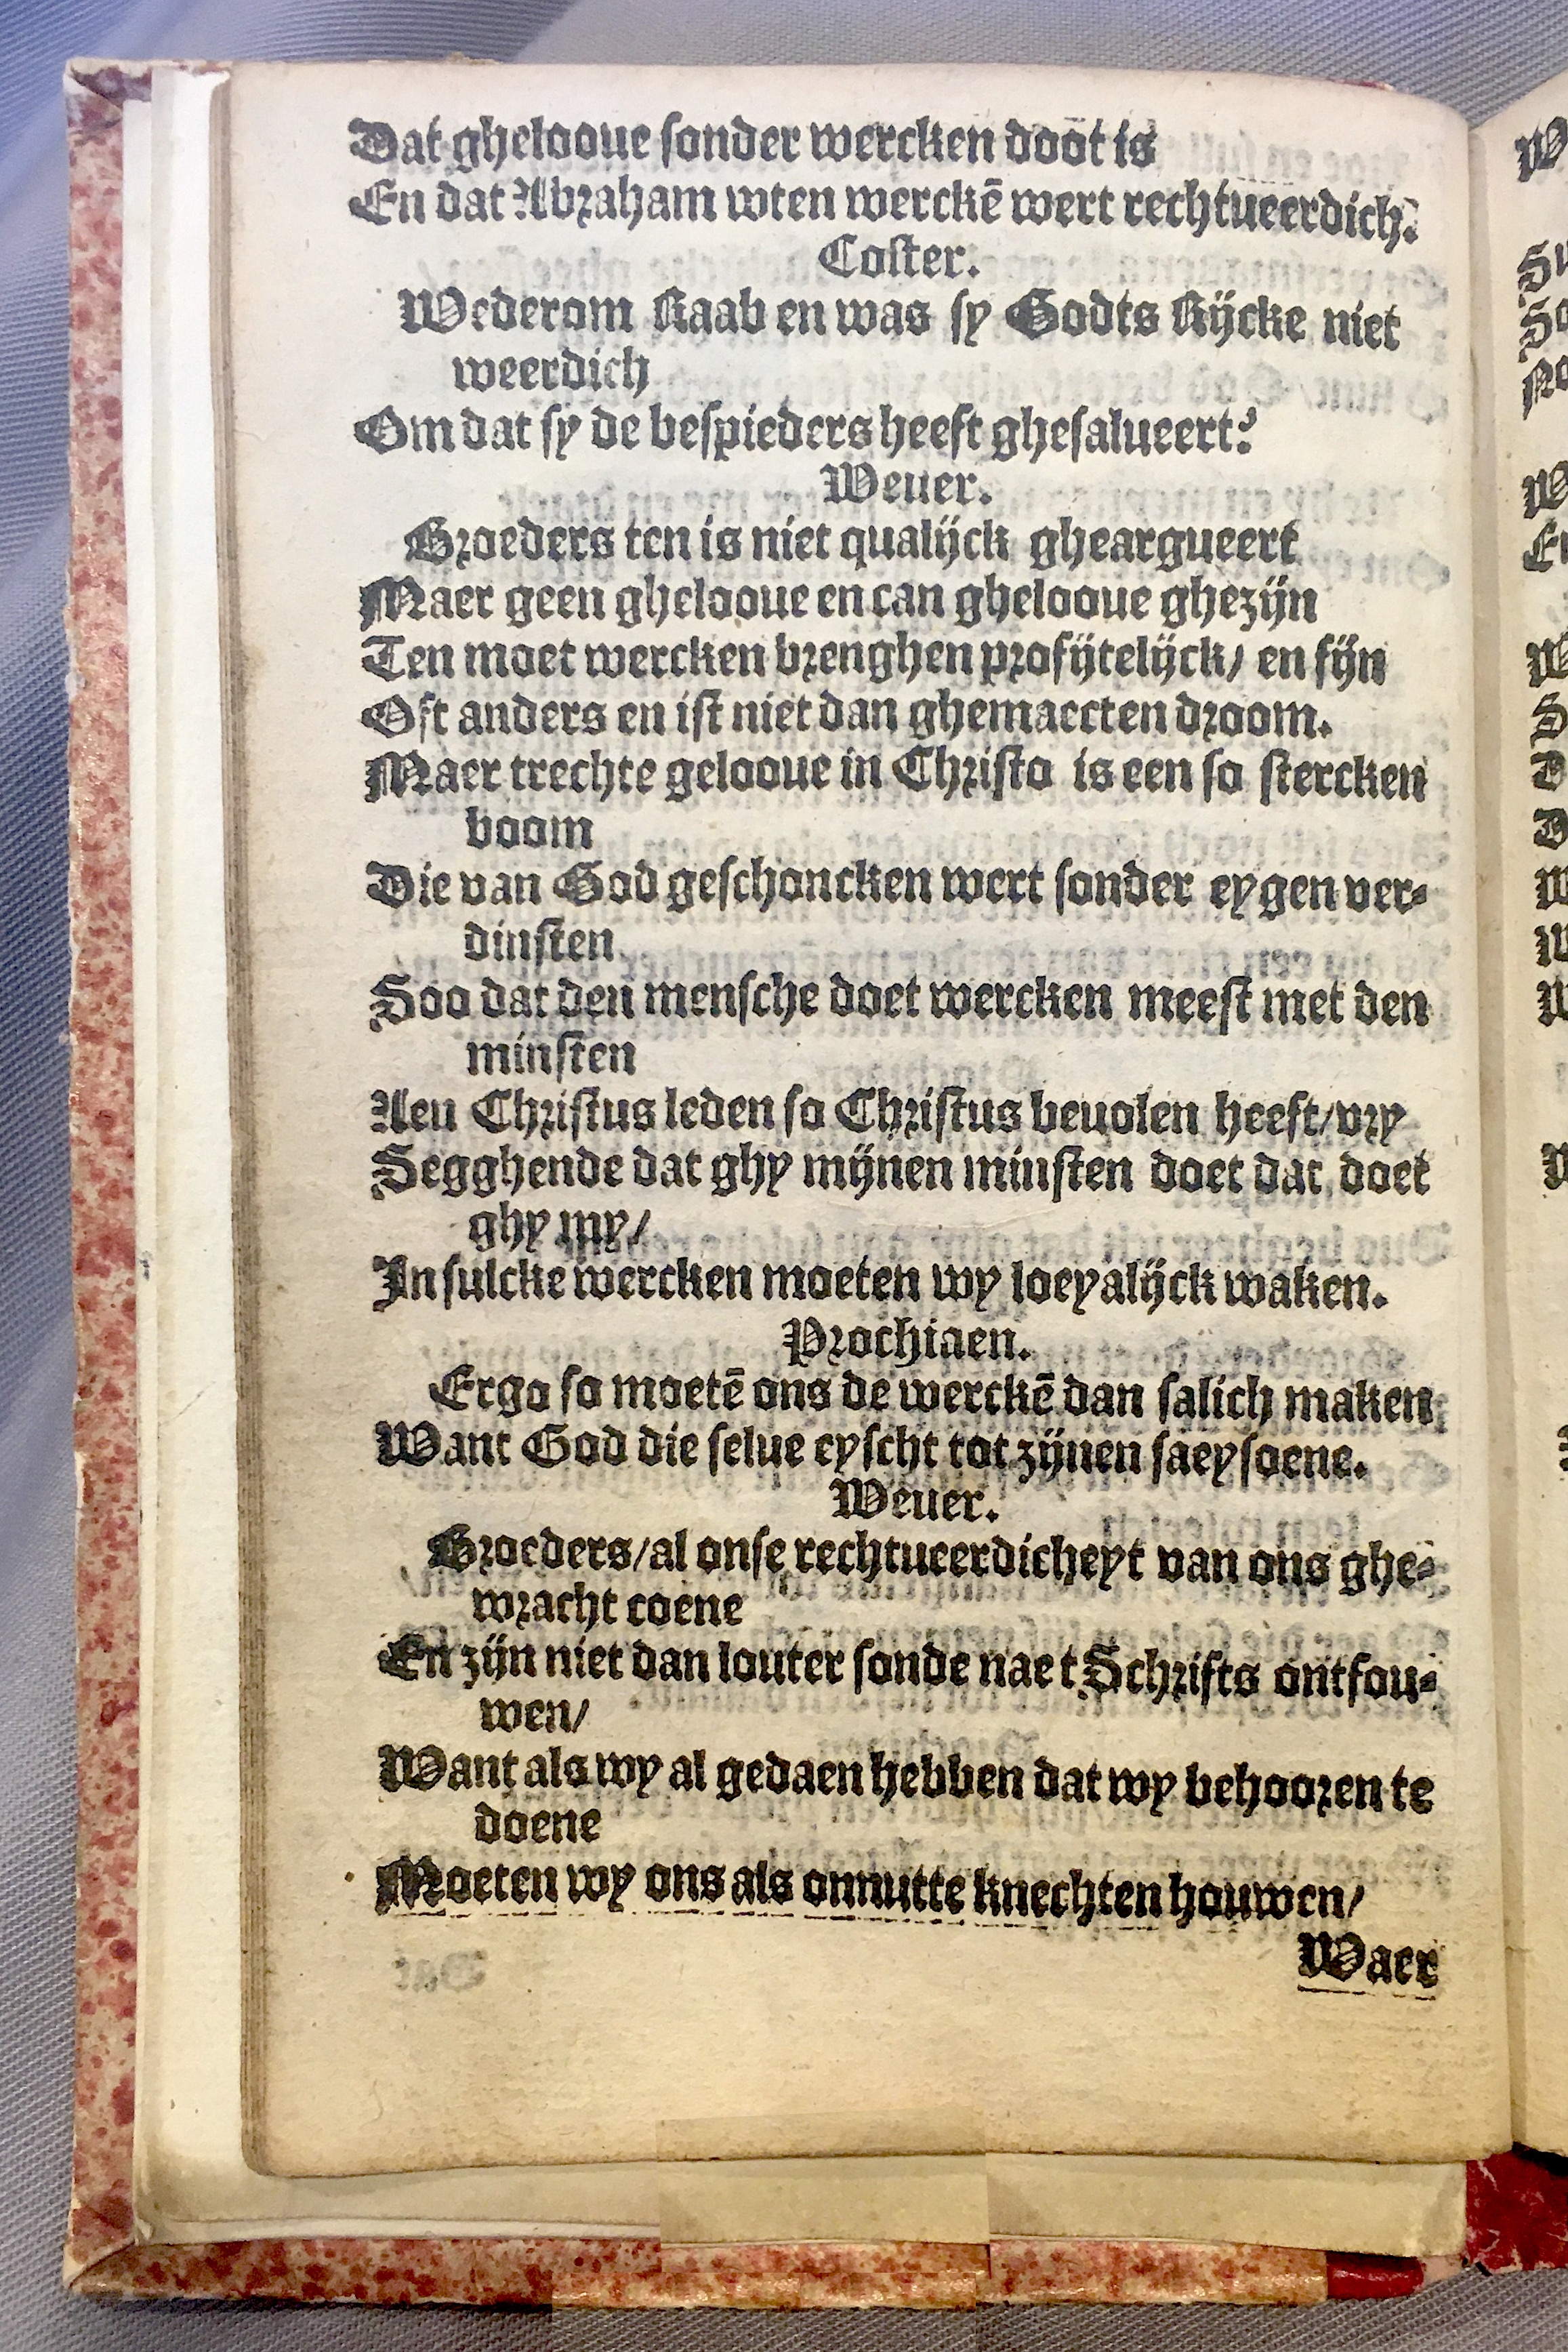 Dat ghelooue sonder wercken doot is
En dat Abraham wten werckē wert rechtueerdich.
Coster.
Wederom Raab en was sy Godts Rijcke niet
weerdich
Om dat sy de bespieders heeft ghesalueert?
Weuer.
Broeders ten is niet qualijck gheargueert
Maer geen ghelooue en can ghelooue ghezijn
Ten moet wercken brenghen profijtelijck/ en fijn
Oft anders en ist niet dan ghemaecten droom.
Maer trechte gelooue in Christo is een so stercken
boom
Die van God geschoncken wert sonder eygen ver-
dinsten
Soo dat den mensche doet wercken meest met den
minsten
Aen Christus leden so Christus beuolen heeft/vry
Segghende dat ghy mijnen minsten doet dat doet
ghy my/
In sulcke wercken moeten wy loeyalijck waken.
Prochiaen.
Ergo so moetē ons de werckē dan salich maken
Want God die selue eyscht tot zijnen saeysoene.
Weuer.
Broeders/al onse rechtueerdicheyt van ons ghe-
wracht coene
En zijn niet dan louter sonde nae t Schrifts ontfou-
wen/
Want als wy al gedaen hebben dat wy behooren te
doene
Moeten wy ons als onnutte knechten houwen/
Waer